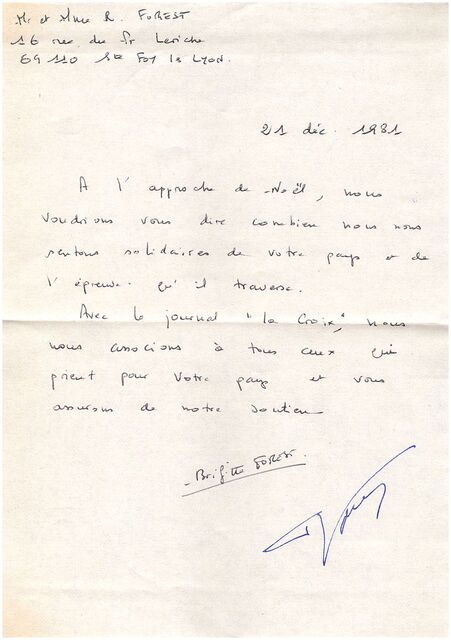 Mr et Mme R. FOREST
16 rue du Pr Leriche
69110 Ste Foy lès Lyon.
21 déc. 1981
A l'approche de Noël, nous
voudrions vous dire combien nous nous
sentons solidaires de votre pays et de
l'épreuve qu'il traverse.
Avec le journal "la Croix", nous
nous associons à tous ceux qui
prient pour votre pays et vous
assurons de notre soutien
Brigitte FOREST.